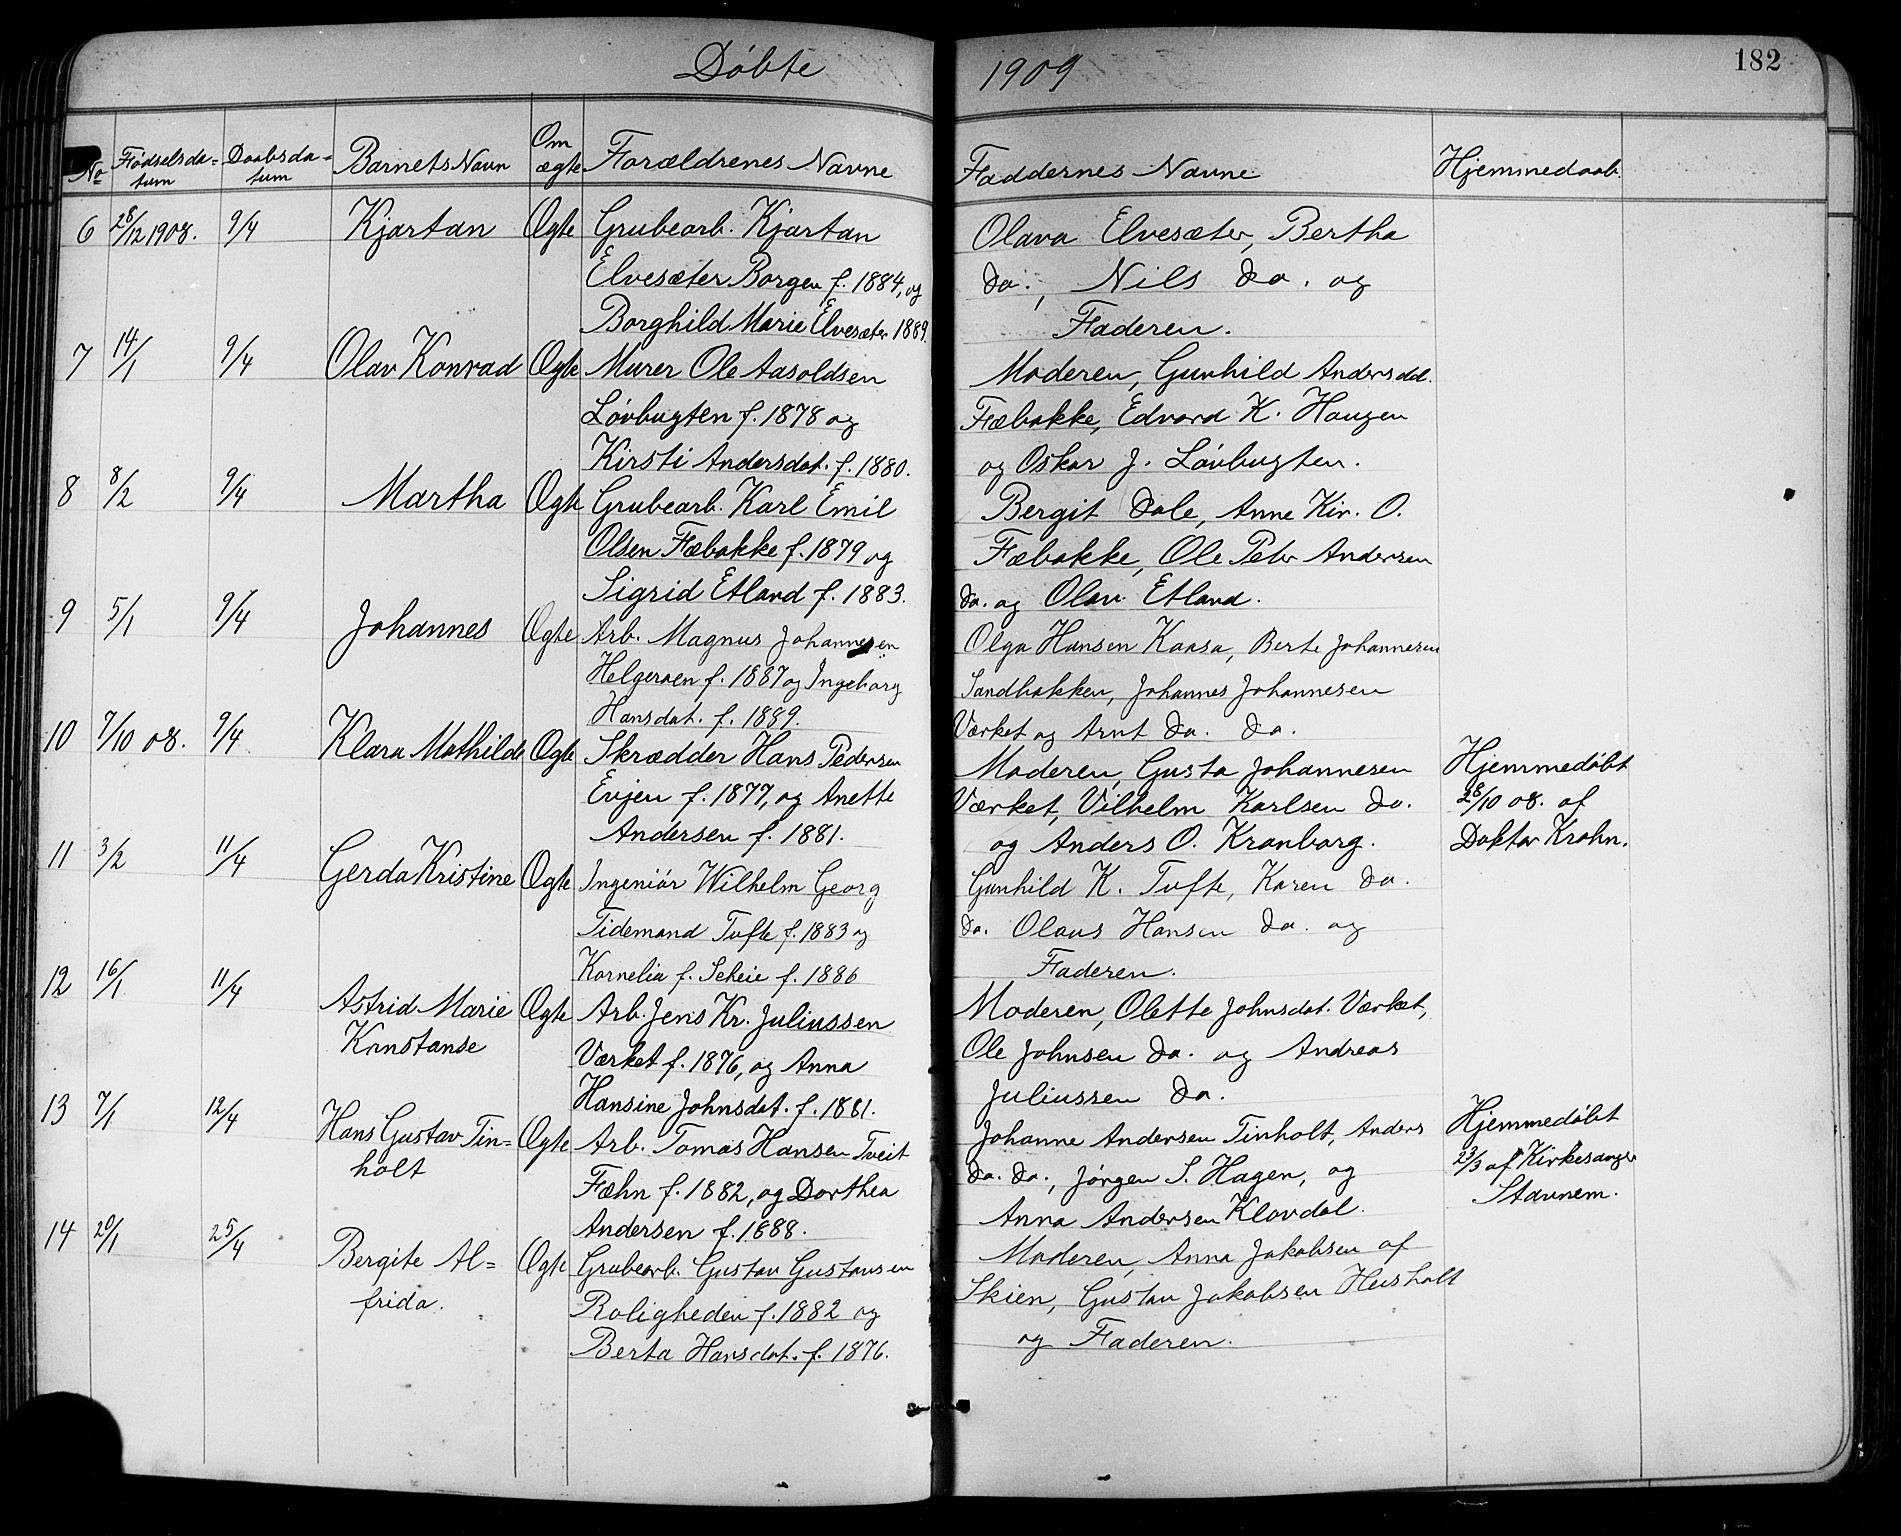 Døbte 1909 182
No Fødselsda= tum Daabsda= tum Barnets Navn Om ægte Forældrenes Navne Faddernes Navne Hjemmedaab
6 28/12 1908. 9/4 Kjartan Ægte Grubearb. Kjartan Olava Elvesæter, Bertha
Elvesæter Borgen f. 1884, og do., Nils do. og
Borghild Marie Elvesæter 1889. Faderen.
7 14/1 9/4 Olav Konrad Ægte Murer Ole Aasoldsen Moderen, Gunhild Andersdal.
Løvbugten f. 1878 og Fæbakke, Edvard K. Haugen
Kirsti Andersdat. f. 1880. og Oskar J. Løvbugten.
8 8/2 9/4 Martha Ægte Grubearb. Karl Emil Bergit Dale, Anne Kir. O.
Olsen Fæbakke f. 1879 og Fæbakke, Ole Peter Andersen
Sigrid Etland f. 1883. do. og Olav Etland.
9 5/1 9/4 Johannes Ægte Arb. Magnus Johannesen Olga Hansen Kaasa, Berte Johannesen
Helgeraen f. 1887 og Ingeborg Sandbakken, Johannes Johannesen
Hansdat. f. 1889. Værket og Arnt do. do.
10 7/10 08. 9/4 Klara Mathilde Ægte Skrædder Hans Pedersen Moderen, Gusta Johannesen Hjemmedøbt
Evjen f. 1877, og Anette Værket, Vilhelm Karlsen do. 28/10 08. af
Andersen f. 1881. og Anders O. Kranborg. Doktor Krohn.
11 3/2 11/4 Gerda Kristine Ægte Ingeniør Wilhelm Georg Gunhild K. Tufte, Karen do.
Tidemand Tufte f. 1883 og do. Olaus Hansen do. og
Kornelia f. Scheie f. 1886 Faderen.
12 16/1 11/4 Astrid Marie Ægte Arb. Jens Kr. Juliussen Moderen, Olette Johnsdat. Værket,
Konstanse Værket f. 1876, og Anna Ole Johnsen do. og Andreas
Hansine Johnsdat. f. 1881. Juliussen do.
13 7/1 12/4 Hans Gustav Tin= Ægte Arb. Tomas Hansen Tveit Johanne Andersen Tinholt, Anders Hjemmedøbt
holt Fæhn f. 1882, og Dorthea do. do., Jørgen S. Hagen, og 23/3 af Kirkesanger
Andersen f. 1888. Anna Andersen Klovdal. Stavnem.
14 20/1 25/4 Bergite Al= Ægte Grubearb. Gustav Gustavsen Moderen, Anna Jakobsen af
frida. Roligheden f. 1882 og Skien, Gustav Jakobsen Husholt
Berta Hansdat. f. 1876. og Faderen.